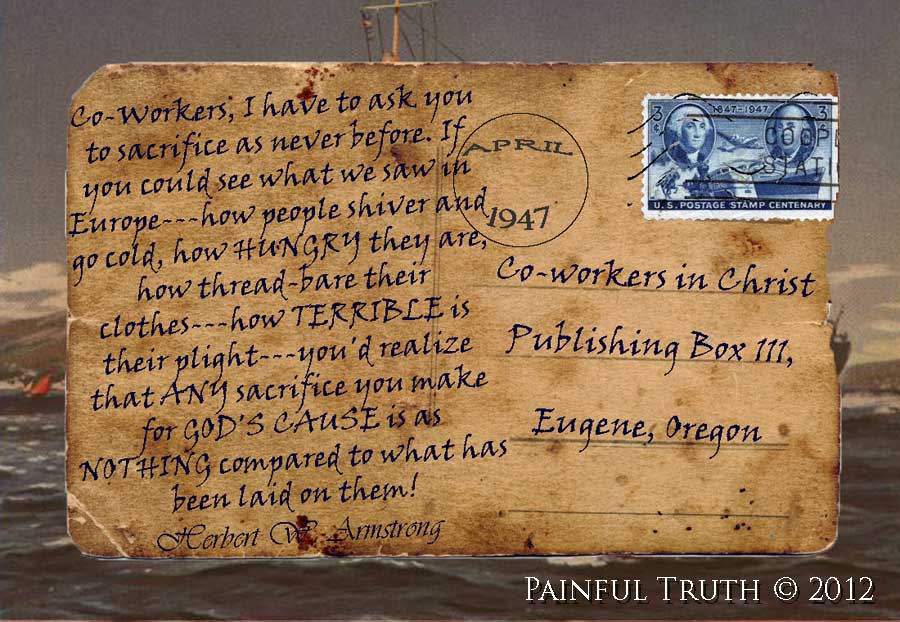 Co-Workers, I have to ask you
to sacrifice as never before. If
you could see what we saw in
Europe---how people shiver and
go cold, how HUNGRY they are,
how thread-bare their
clothes---how TERRIBLE is
their plight---you'd realize
that ANY sacrifice you make
for GOD'S CAUSE is as
NOTHING compared to what has
been laid on them!
Herbert W. Armstrong
APRIL
1947
1847-1947
3¢ 3¢
U.S. POSTAGE STAMP CENTENARY
Co-workers in Christ
Publishing Box 111,
Eugene, Oregon
PAINFUL TRUTH © 2012